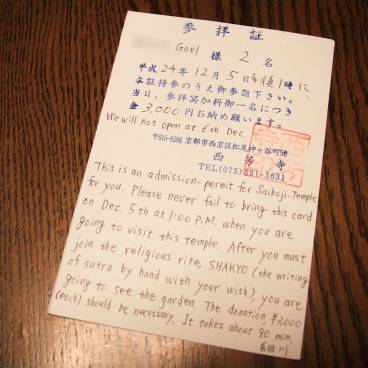 参拝証
Gael 様 2 名
平成 24年 12月 5日午後1時に
本証持参のうえ御参詣下さい。
当日、参拝冥加料御一名につき
金 3,000円お納め願います。
We will not open at 6th Dec.
〒615-8286 京都市西京区松尾神ヶ谷町56
西芳寺
TEL(075)391-3631
This is an admission-permit for Saihoji-Temple
for you. Please never fail to bring this card
on Dec. 5th at 1:00 P.M. when you are
going to visit this temple. After you must
join the religious rite, SHAKYO (the writing
of sutra by hand with your wish), you are
going to see the garden. The donation, ¥3,000
(each) should be necessary. It takes about 90 min.